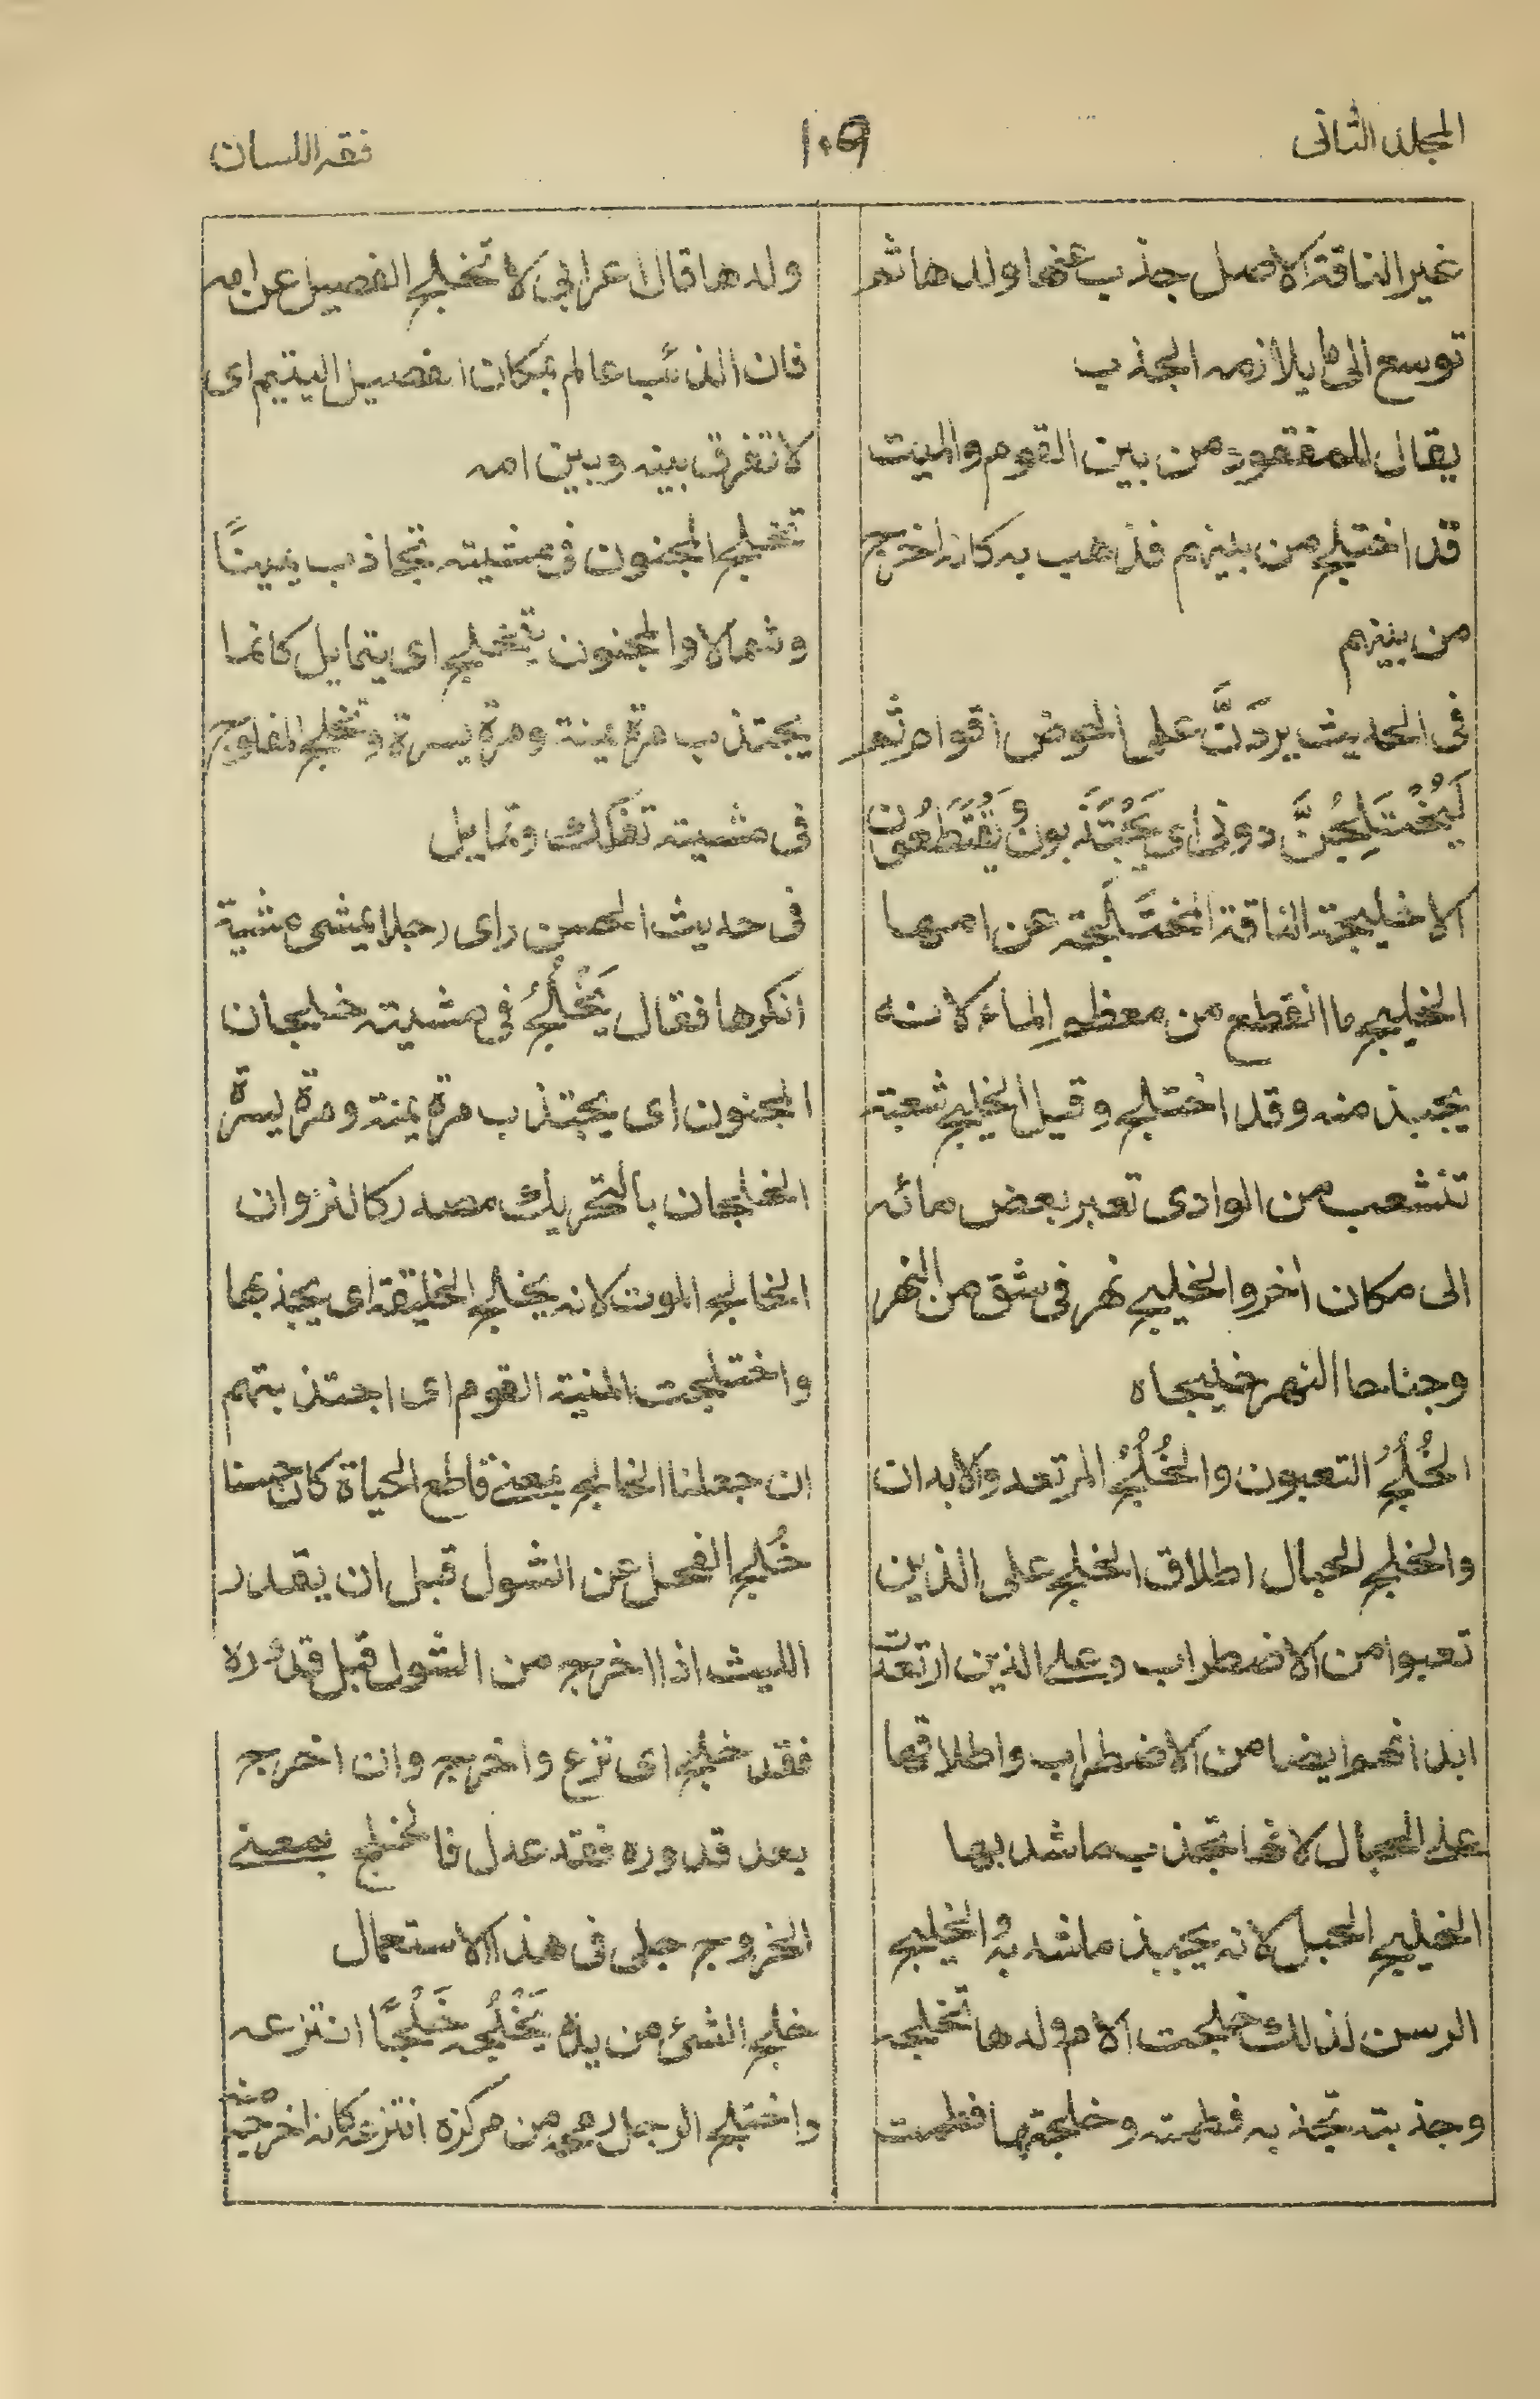 المجلد الثانى
١٠٩
فقه اللسان
غير الناقة الاصل جذب عنها ولدها ثم
توسع الى ما يلازمه الجذب
يقال للمفقود من بين القوم والميت
قد اختلج من بينهم فذهب به كانه اخرج
من بينهم
فى الحديث يردَنَّ على الحوض اقوام ثم
لَيُخْتَلِجُنَّ دونى اى يُجْتَذَبون ويُقْتَطَعُون
الاخليجة الناقة المختَلَجة عن امها
الخليج ما انقطع من معظم الماء لانه
يجبذ منه وقد اختلج وقيل الخليج شعبة
تنشعب من الوادى تعبر بعض مائه
الى مكان اخر والخليج نهر فى شق من النهر
وجناحا النهر خليجاه
الخُلُجُ التعبون والخُلُجُ المرتعدو الابدان
والخلج الحبال اطلاق الخلج على الذين
تعبوا من الاضطراب وعلى الذين ارتعدت
ابدانهم ايضا من الاضطراب واطلاقها
على الحبال لانها تجذب ما شد بها
الخليج الحبل لانه يجبذ ما شد به والخليج
الرسن لذلك خلجت الام ولدها تخلجه
وجذبته تجذبه فطمته وخلجتها فطمت
ولدها قال اعرابى لا تخلج الفصيل عن امه
فان الذئب عالم بمكان الفصيل اليتيم اى
لا تفرق بينه وبين امه
تخلج المجنون فى مشيته تجاذب يمينًا
وشمالا والمجنون يتخلج اى يتمايل كانما
يجتذب مرة يمنة ومرة يسرة وتخلج المفلوج
فى مشيته تفكك وتمايل
فى حديث الحسن راى رجلا يمشى مشية
انكرها فقال يَخْلُجُ فى مشيته خلجان
المجنون اى يجتذب مرة يمنة ومرة يسرة
الخلجان بالتحريك مصدر كالنزوان
الخالج الموت لانه يخلج الخليقة اى يجذبها
واختلجت المنية القوم اى اجتذبتهم
ان جعلنا الخالج بمعنى قاطع الحياة كان حسنا
خُلِج الفحل عن الشول قبل ان يقدر
الليث اذا اخرج من الشول قبل قدوره
فقد خلج اى نزع واخرج وان اخرج
بعد قدوره فقد عدل فالخلج بمعنى
الخروج جلى فى هذا الاستعمال
خلج الشئ من يده يَخْلُجه خَلْجًا انتزعه
واختلج الرجل رمحه من مركزه انتزعه كانه اخرجه منه